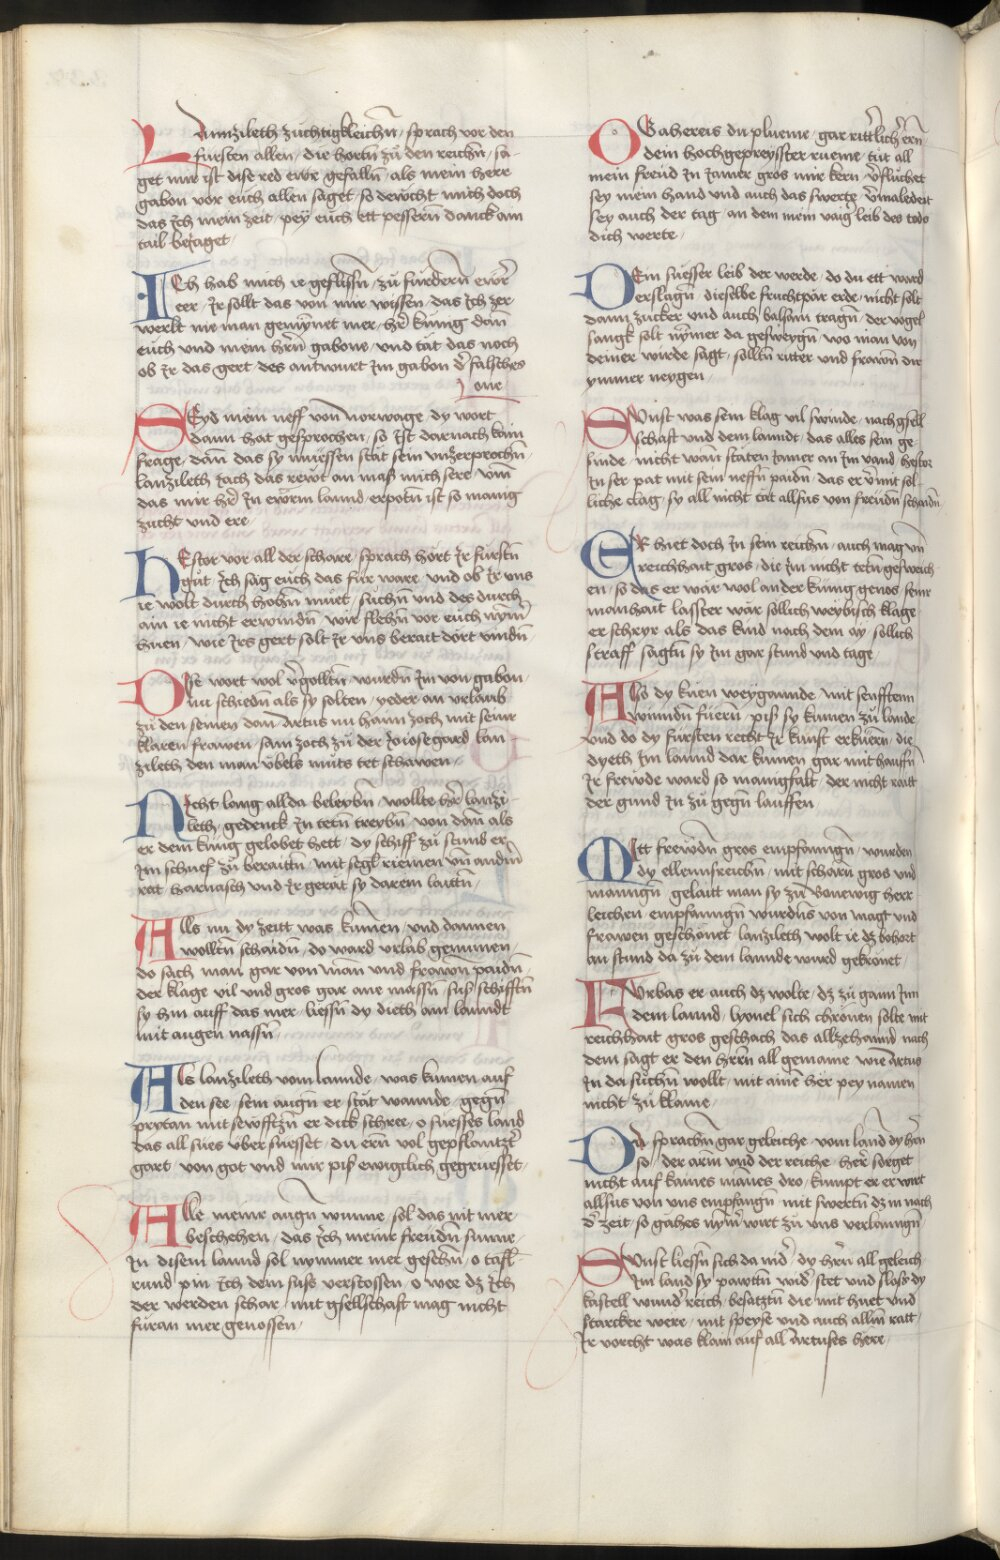 Lannzileth zuchtigkleichn̄ / sprach vor den
fursten allen / die hortn̄ zů den reichn̄ / sa-
get mir ist dise red ewr gefalln̄ / als mein herr
gabon vor euch allen saget / so dewcht mich doch
das Ich mein zeit / pey euch ett pessern̄ danck am
tail bejaget /
ICh hab mich ie geflissn̄ / zů furdern̄ ewr̄
eer / Ir sollt das von mir wissen / das Ich zer
werlt nie man gewynnet mer / hr̄ kunig dan̄
euch und mein hrn̄ gabone / und tat das noch
ob Ir das gert / des antwurt Im gabon d' falsches
one
SEyd mein neff von norwage / dy wort
dann hat gesprochen / so Ist darnach kain
frage / dan̄ das sy müessen stat sein unzerprochn̄
lanzileth zach das rewt an mass mich sere / um̄
das mir hr̄ In ewrm lannd / erpotn̄ ist so manig
zucht und ere /
hEstor vor all der scharr / sprach hort Ir furstn̄
gůt / Ich sag euch das fur ware / und ob Ir uns
ie wolt durch hohn̄ muet / suchn̄ und des durch
ain ie nicht erwindn̄ / wir fliehn̄ vor euch nym̄
hnen / wie Irs gert solt Ir uns berait dort vindn̄
DIse wort wol v'golltn̄ / wurdn̄ Im von gabon /
nu schiedn̄ als sy solten / yeder an urlaub
zů den seinen dan / Artus nu haim zoch mit seinr
klaren frawen / sam zoch zů der Joiosegard lan-
zileth den man ubels nuits tet schawen /
NIcht lang allda beleybn̄ / wollte hr̄ lanzi-
leth / gedenck In tetn̄ treybn̄ / von dan̄ als
er dem kunig gelobet hett / dy schiff zů stund er
Im schuef zů beraittn̄ / mit segl riemen un̄ andm̄
rat / harnasch und Ir gerät sy darein laittn̄ /
Alls nu dy zeitt was kum̄en / und dannen
wolltn̄ schaidn̄ / do ward urlab genumen /
do sach man gar von man und frawn̄ paidn̄ /
der klage vil und gros gar ane massn̄ / sust schifftn̄
sy hin auff das mer / liessn̄ dy dieth am lanndt
mit augen nassn̄ /
Als lanzileth vom lannde / was kumen auf
den see / sein augn̄ er stät wannde / gegn̄
prytan mit sewfftzn̄ er dick schree / o suesses land
das all sues ubersuesset / du ern̄ vol gepflantzt'
gart / von got und mir pis ewigclich gegruesset /
Alle meinr augn̄ wunne / sol das nit mer
beschehen / das Ich meinr freudn̄ sunne /
In disem lannd sol nymmer mer gesehn̄ / o tafl-
rund pin Ich dein suss verstossen / o wee dz Ich
der werden schar / mit gsellschaft mag nicht
furan mer genossen /
O Gahereis du plueme / gar rittlich' ern̄
dein hochgepreyster rueme / tut all
mein freud In Jamer gros mir kern / v'fluchet
sey mein hand und auch das swerte / v'maledeit
sey auch der tag / an dem mein vaig' leib des tods
dich werte /
DEin suesser leib der werde / do du ett ward
erslagn̄ / dieselbe fruchtpar erde / nicht solt
dann zucker und auch balsam tragn̄ / der vogel
sangk solt nym̄er da gesweygn̄ / wo man von
deiner wirde sagt / solln̄ ritter und frawn̄ die
ymmer neygen /
SUnst was sein klag vil swinde / nach gsell
schaft und dem lanndt / das alles sein ge
sinde / nicht wan stäten Jamer an Im vand / hestor
In ser pat mit sein neffn̄ paidn̄ / das er v'mit sol-
liche clag / sy all nicht tät allsus von freudn̄ schaidn̄
ER hiet doch In sein reichn̄ / auch mag un̄
reichhait gros / die Im nicht tetn̄ gesweich-
en / so das er wär wol ander kunig genos / seinr
manhait lasster wär sollich weybisch klage
er schryr als das kind nach dem ay / sollich
straff sagtn̄ sy Im gar stund und tage
Also dy kuen weygannde / mit senfftenn
winndn̄ fuern̄ / piss sy kumen zů lande
und do dy fursten recht Ir kunft erkuern̄ / die
dyeth Im lannd dar kumen gar mit hauffn̄
Ir frewde ward so manigfalt / der nicht ratt
der gund In zů gegn̄ lauffen
MItt frewdn̄ gros empfanngn̄ / wurden
dy ellennsreichn̄ / mit scharn̄ gros und
manngn̄ / gelaitt man sy zů Bonewig herr
leichen / empfanngn̄ wurdn̄s von magt und
frawen geschonet / lanzileth wolt ie dz bohort
an stund da zů dem lannde wurd gekronet /
FUrbas er auch dz wolte / dz zů gann Inn
dem lannd / lyonel sich chronen solte mit
reichhait gros / geschach das allzehannd / nach
dem sagt er den hrrn̄ all gemaine / wie artus
In da suchn̄ wollt / mit ainē her pey namen
nicht zů klaine /
DA sprachn̄ gar geleiche / vom lannd dy hrn̄
so / der arm̄ und der reiche / her' sorget
nicht auf kaines mānes dro / kumpt er er wirt
allsus von uns empfangn̄ / mit swertn̄ dz in nach
d' zeit / so gähes nym̄' wirt zů uns verlanngn̄
SUnst liessn̄ sich da nid' / dy hrn̄ all geleich
Im land sy pawttn̄ wid' / stet und slosz dy
kastell wund' reich / besatztn̄ die mit huet und
starcker were / mit speyse und auch allm̄ ratt
Ir vorcht was klain auf all Artuses here /